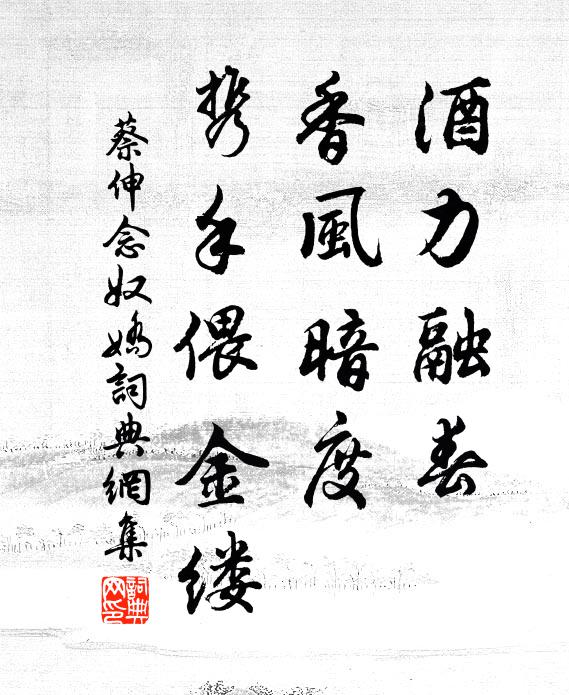 酒力融春
香風暗度
携手偎金缕
蔡伸念奴嬌詞典網集
詞典网印